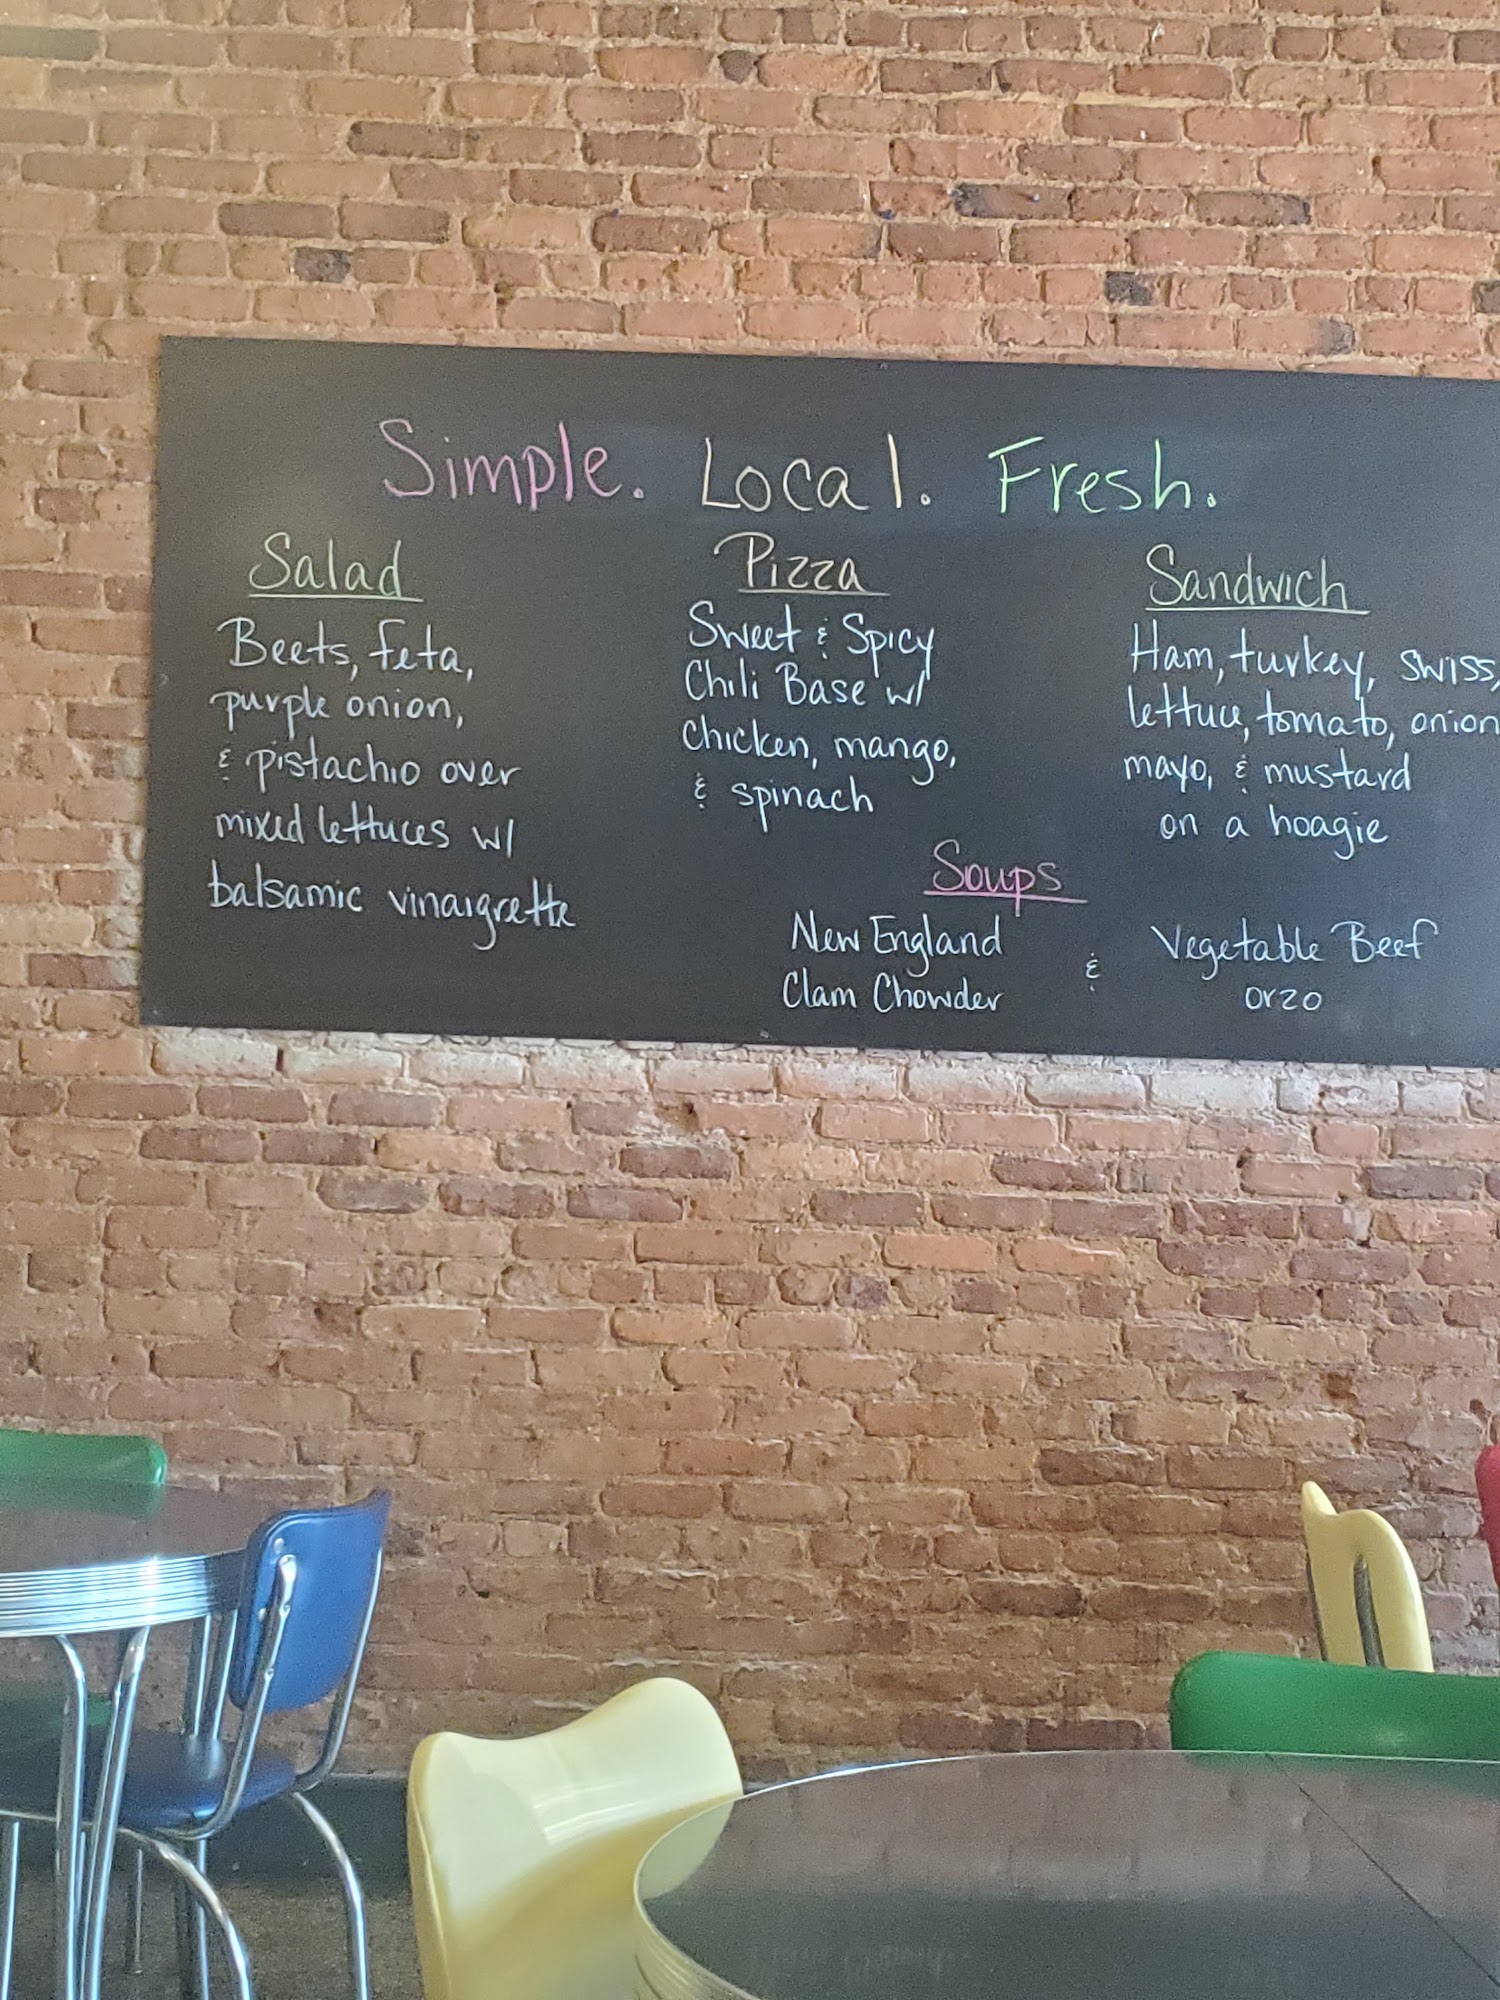 Simple. Local. Fresh.
Salad
Beets, feta,
purple onion,
& pistachio over
mixed lettuces w/
balsamic vinaigrette
Pizza
Sweet & Spicy
Chili Base w/
chicken, mango,
& spinach
Sandwich
Ham, turkey, swiss,
lettuce, tomato, onion
mayo, & mustard
on a hoagie
Soups
New England
Clam Chowder
&
Vegetable Beef
orzo